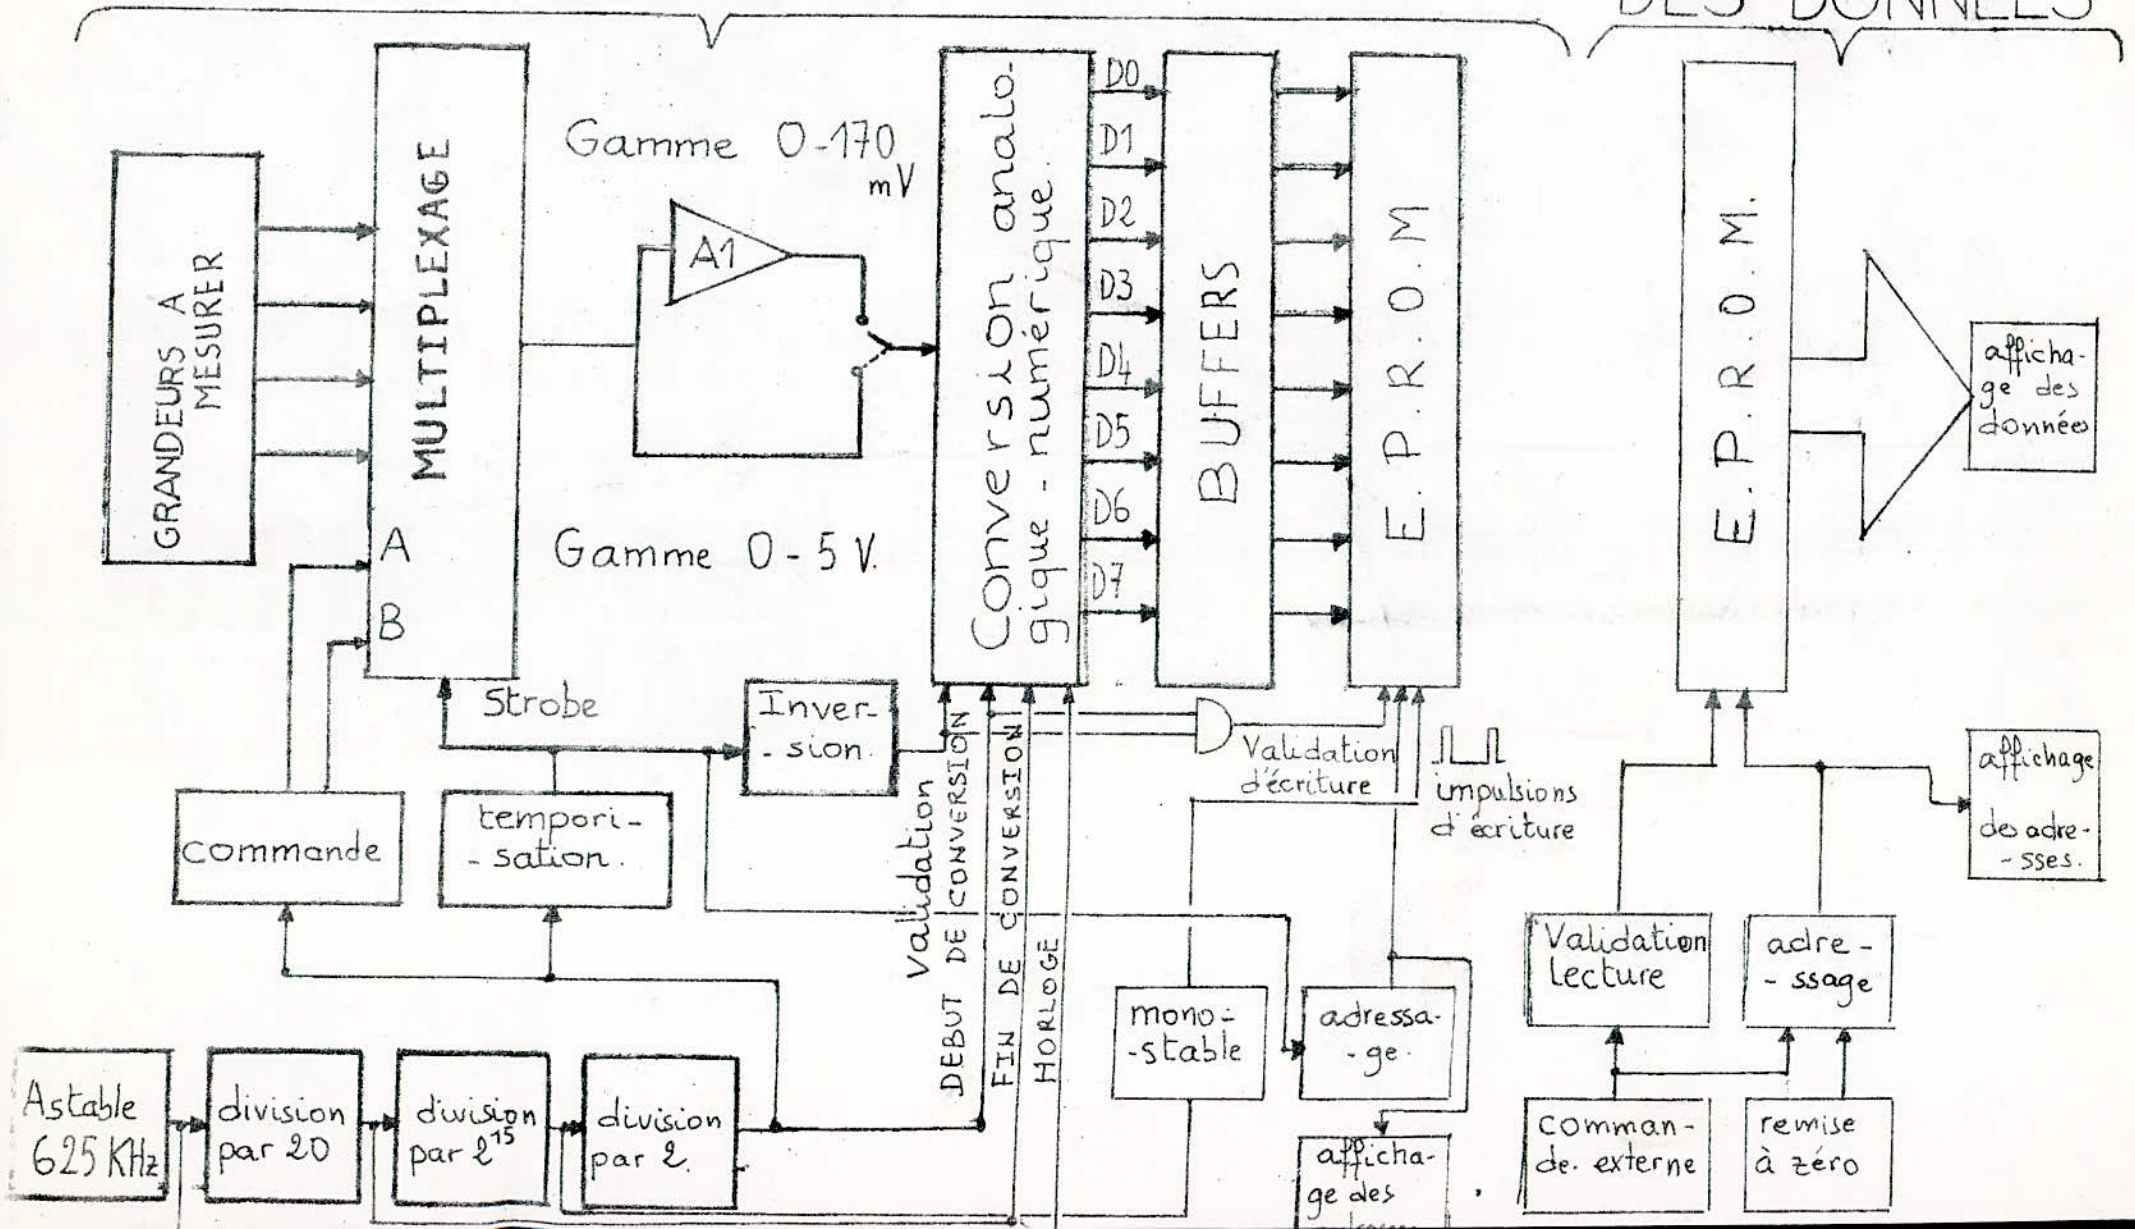 DES DONNÉES
GRANDEURS A
MESURER
MULTIPLEXAGE
A
B
Gamme 0-170
mV
A1
Gamme 0 - 5 V.
Conversion analo-
gique - numérique.
D0
D1
D2
D3
D4
D5
D6
D7
BUFFERS
E.P.R.O.M
E.P.R.O.M.
afficha-
ge des
données
Strobe
Inver-
- sion.
commande
tempori-
- sation.
Validation
DEBUT DE CONVERSION
FIN DE CONVERSION
HORLOGE
Validation
d'écriture
impulsions
d'écriture
affichage
des adre-
- sses.
Validation
lecture
adre-
- ssage
mono-
-stable
adressa-
- ge.
Astable
625 KHz
division
par 20
division
par 2¹⁵
division
par 2.
afficha-
ge des
comman-
de. externe
remise
à zéro